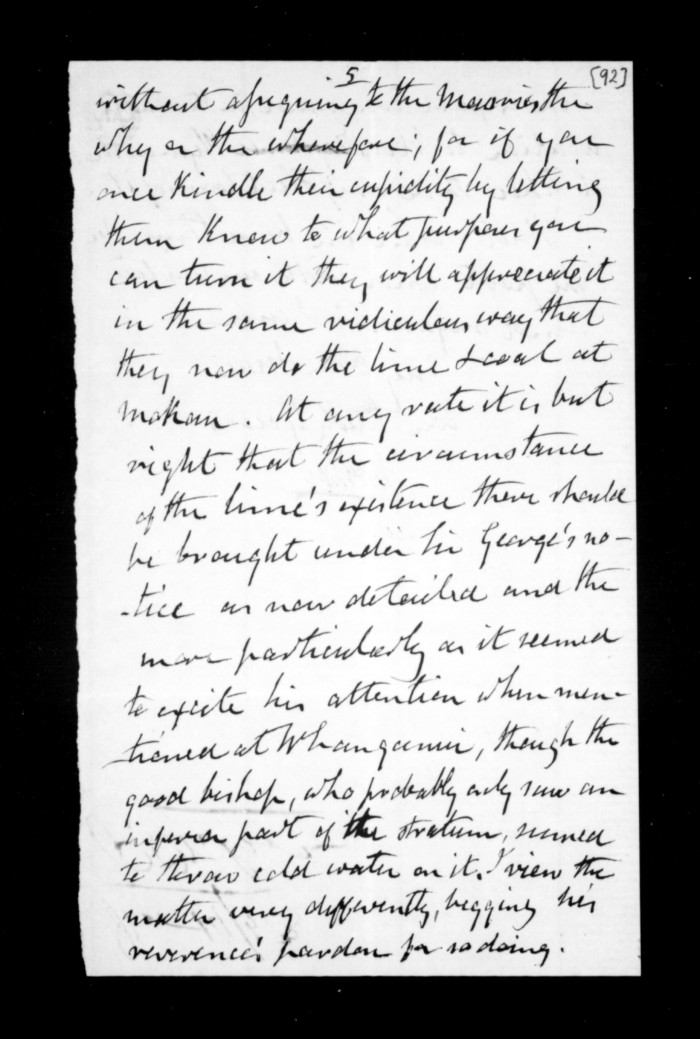 5
[92]
without assigning to the Maories the
why or the wherefore; for if you
once kindle their cupidity by letting
them know to what purposes you
can turn it they will appreciate it
in the same ridiculous way that
they now do the lime & coal at
Mokau. At any rate it is but
right that the circumstance
of the lime's existence there should
be brought under Sir George's no-
-tice as now detailed and the
more particularly as it seemed
to excite his attention when men-
-tioned at Whanganui, though the
good bishop, who probably only saw an
inferior part of the stratum, seemed
to throw cold water on it. I view the
matter very differently, begging his
reverence's pardon for so doing.